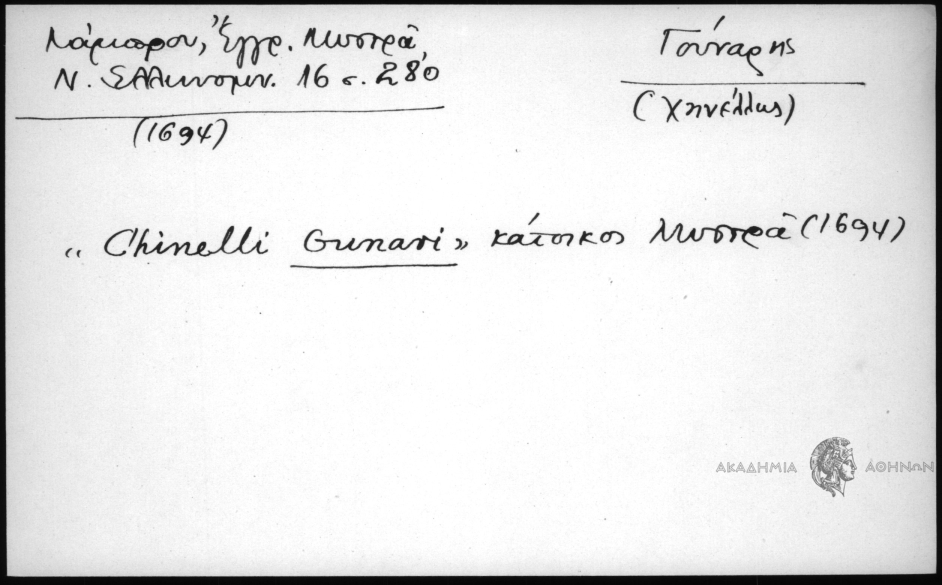 Λάμπρου, Ἔγγρ. Μυστρᾶ,
Ν. Ἑλληνομν. 16 σ. 280
(1694)
Γούναρης
(Χηνέλλης)
„ Chinelli Gunari” κάτοικος Μυστρᾶ (1694)
ΑΚΑΔΗΜΙΑ ΑΘΗΝΩΝ